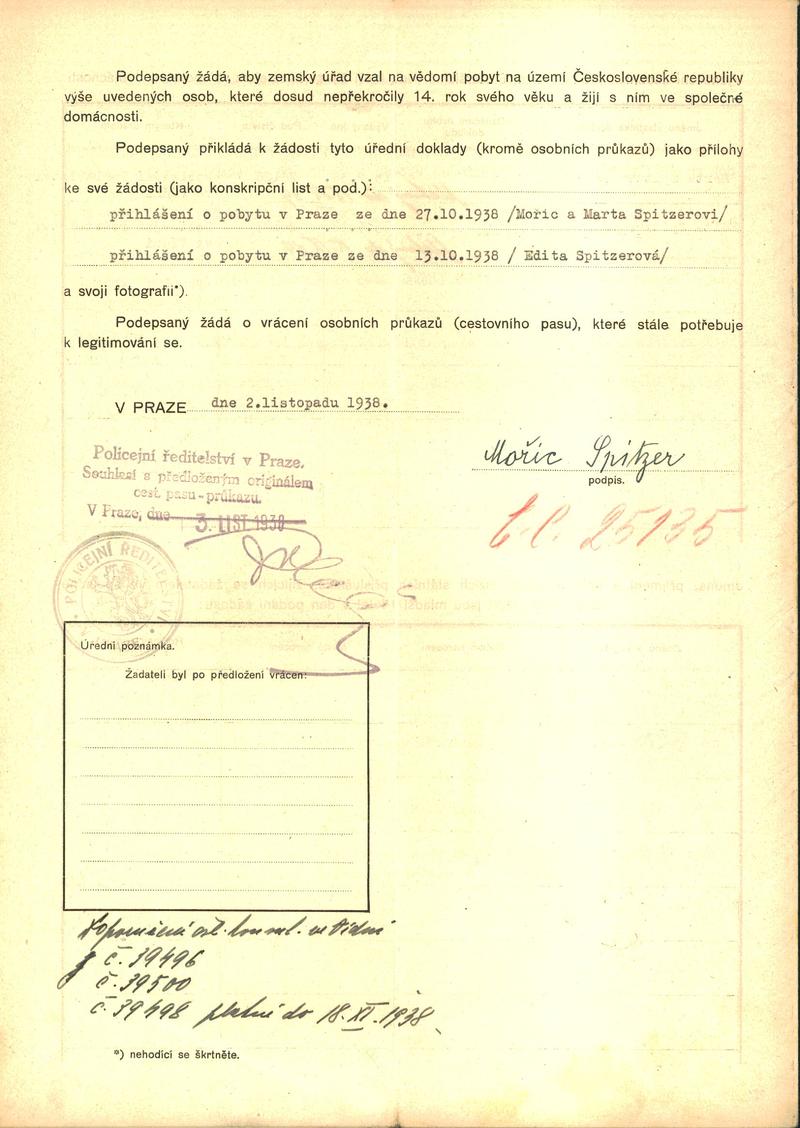 Podepsaný žádá, aby zemský úřad vzal na vědomí pobyt na území Československé republiky
výše uvedených osob, které dosud nepřekročily 14. rok svého věku a žijí s ním ve společné
domácnosti.
Podepsaný přikládá k žádosti tyto úřední doklady (kromě osobních průkazů) jako přílohy
ke své žádosti (jako konskripční list a pod.):
přihlášení o pobytu v Praze ze dne 27.10.1938 /Mořic a Marta Spitzerovi/
přihlášení o pobytu v Praze ze dne 13.10.1938 / Edita Spitzerová/
a svoji fotografii*).
Podepsaný žádá o vrácení osobních průkazů (cestovního pasu), které stále potřebuje
k legitimování se.
V PRAZE dne 2.listopadu 1938.
Policejní ředitelství v Praze.
Souhlasí s předloženým originálem
cest. pasu-průkazu.
V Praze, dne 3. LIST. 1938
Mořic Spitzer
podpis.
25135
POLICEJNÍ ŘEDITELSTVÍ
Úřední poznámka.
Žadateli byl po předložení vrácen:
ve Vídni
č. 39496
č. 39500
č. 39498 platné do 18. XI. 1938
*) nehodící se škrtněte.